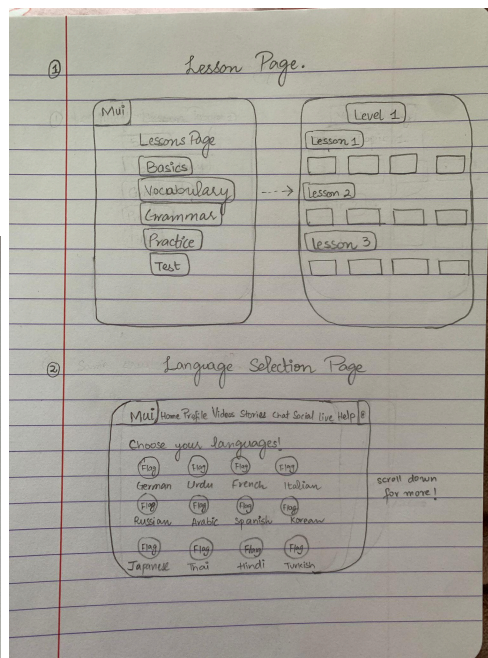 ① Lesson Page.
Mui
Lessons Page
Basics
Vocabulary
Grammar
Practice
Test
Level 1
Lesson 1
Lesson 2
Lesson 3
② Language Selection Page
Mui Home Profile Videos Stories Chat Social live Help
Choose your languages!
Flag Flag Flag Flag
German Urdu French Italian
Flag Flag Flag Flag
Russian Arabic Spanish Korean
Flag Flag Flag Flag
Japanese Thai Hindi Turkish
scroll down
for more!